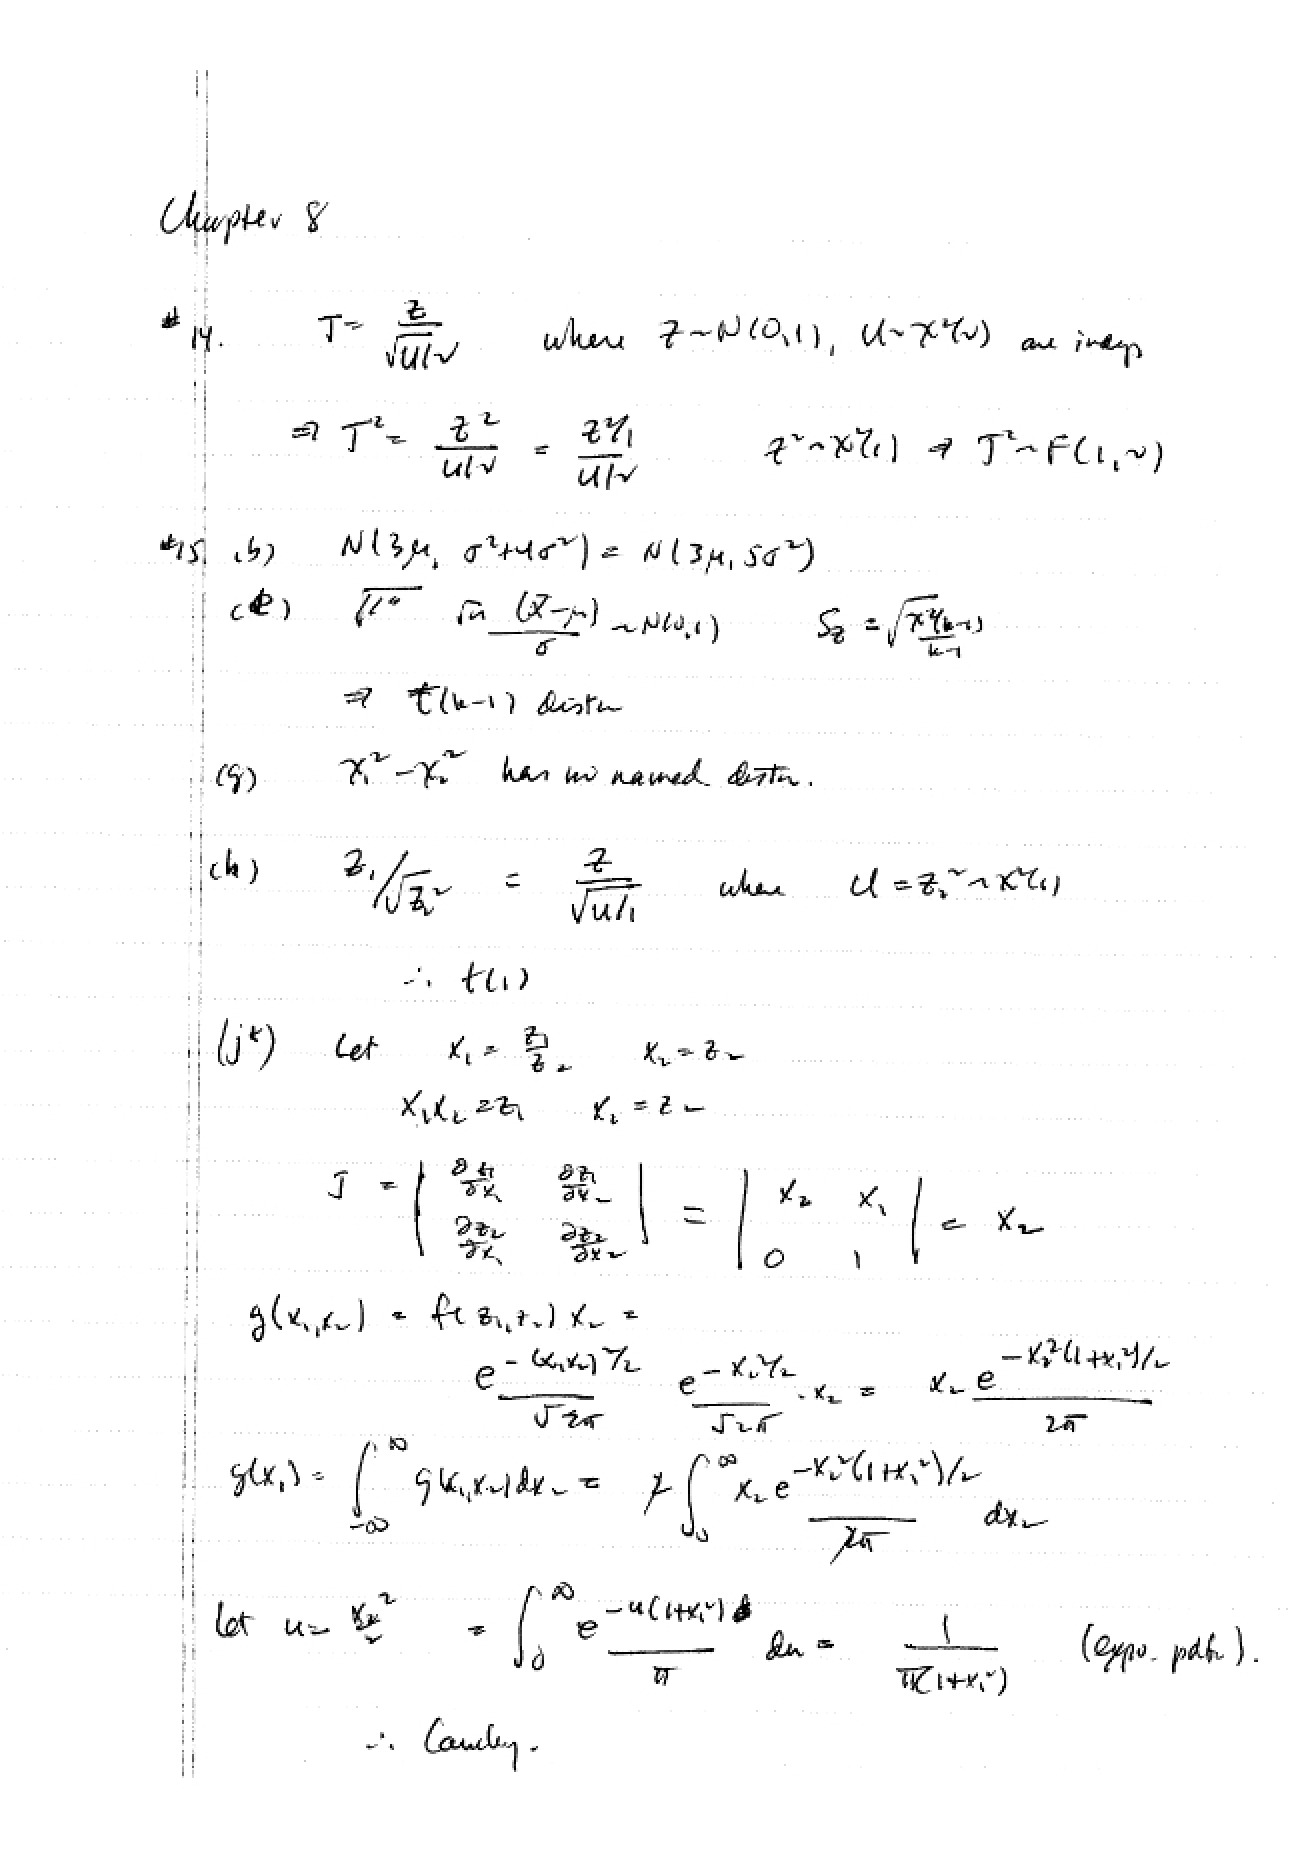 Chapter 8
#14. T = Z / √(U/ν) where Z ~ N(0,1), U ~ χ²(ν) are indep
⇒ T² = Z² / (U/ν) = (Z²/1) / (U/ν) Z² ~ χ²(1) ⇒ T² ~ F(1, ν)
#15. (b) N(3μ, σ²+4σ²) = N(3μ, 5σ²)
(e) √n (X̄-μ) / σ ~ N(0,1) S_Z = √(χ²(k-1) / (k-1))
⇒ t(k-1) distn
(g) X₁² - X₂² has no named distn.
(h) Z₁/√Z₂² = Z / √(U/1) where U = Z₂² ~ χ²(1)
∴ t(1)
(j*) Let X₁ = Z₁/Z₂ X₂ = Z₂
X₁X₂ = Z₁ X₂ = Z₂
J = | ∂z₁/∂x₁ ∂z₁/∂x₂ ; ∂z₂/∂x₁ ∂z₂/∂x₂ | = | x₂ x₁ ; 0 1 | = x₂
g(x₁,x₂) = f(z₁,z₂) x₂ =
e^(-(x₁x₂)²/2) / √2π e^(-x₂²/2) / √2π · x₂ = x₂ e^(-x₂²(1+x₁²)/2) / 2π
g(x₁) = ∫_{-∞}^{∞} g(x₁,x₂) dx₂ = 2 ∫_0^∞ x₂ e^(-x₂²(1+x₁²)/2) / 2π dx₂
Let u = x₂²/2 = ∫_0^∞ e^(-u(1+x₁²)) / π du = 1 / π(1+x₁²) (expo. pdf).
∴ Cauchy.